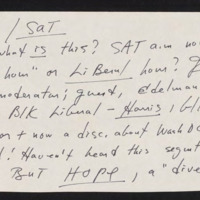 / SAT
what is this? SAT a.m. no
hour" or LiBeral hour?
moderator; guest, Edelman
Blk Liberal – Harris,
+ now a disc. about Wash DC
! Haven't heard this segm
But HOPE, a "dive